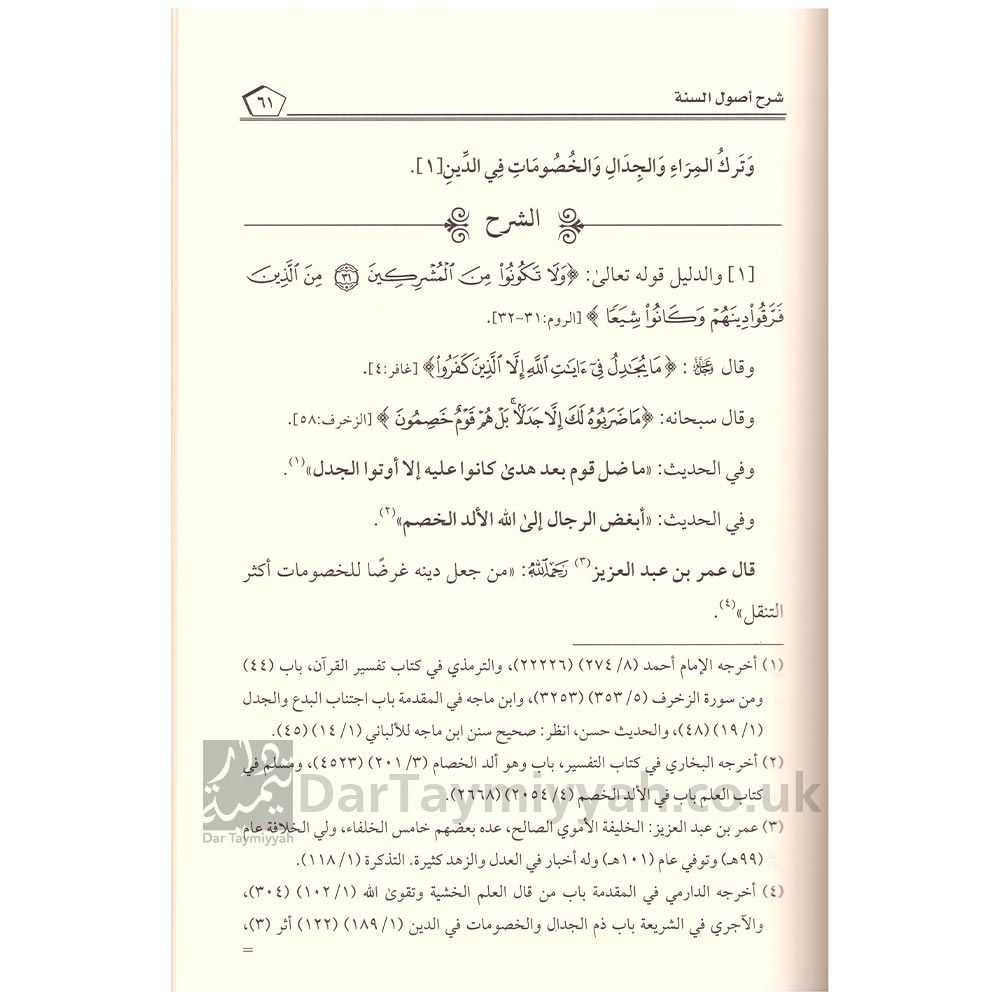 شرح أصول السنة
٦١
وَتَركُ المِرَاءِ وَالجِدَالِ وَالخُصُومَاتِ فِي الدِّينِ[١].
الشرح
[١] والدليل قوله تعالىٰ: ﴿وَلَا تَكُونُوا۟ مِنَ ٱلْمُشْرِكِينَ ٣١ مِنَ ٱلَّذِينَ
فَرَّقُوا۟ دِينَهُمْ وَكَانُوا۟ شِيَعًا﴾ [الروم:٣١-٣٢].
وقال ﷿: ﴿مَا يُجَٰدِلُ فِىٓ ءَايَٰتِ ٱللَّهِ إِلَّا ٱلَّذِينَ كَفَرُوا۟﴾ [غافر:٤].
وقال سبحانه: ﴿مَا ضَرَبُوهُ لَكَ إِلَّا جَدَلًۢا ۚ بَلْ هُمْ قَوْمٌ خَصِمُونَ﴾ [الزخرف:٥٨].
وفي الحديث: «ما ضل قوم بعد هدىٰ كانوا عليه إلا أوتوا الجدل»(١).
وفي الحديث: «أبغض الرجال إلىٰ الله الألد الخصم»(٢).
قال عمر بن عبد العزيز(٣) رَحِمَهُ اللَّهُ: «من جعل دينه غرضًا للخصومات أكثر
التنقل»(٤).
(١) أخرجه الإمام أحمد (٨/ ٢٧٤) (٢٢٢٢٦)، والترمذي في كتاب تفسير القرآن، باب (٤٤)
ومن سورة الزخرف (٥/ ٣٥٣) (٣٢٥٣)، وابن ماجه في المقدمة باب اجتناب البدع والجدل
(١/ ١٩) (٤٨)، والحديث حسن، انظر: صحيح سنن ابن ماجه للألباني (١/ ١٤) (٤٥).
(٢) أخرجه البخاري في كتاب التفسير، باب وهو ألد الخصام (٣/ ٢٠١) (٤٥٢٣)، ومسلم في
كتاب العلم باب في الألد الخصم (٤/ ٢٠٥٤) (٢٦٦٨).
(٣) عمر بن عبد العزيز: الخليفة الأموي الصالح، عده بعضهم خامس الخلفاء، ولي الخلافة عام
(٩٩هـ) وتوفي عام (١٠١هـ) وله أخبار في العدل والزهد كثيرة. التذكرة (١/ ١١٨).
(٤) أخرجه الدارمي في المقدمة باب من قال العلم الخشية وتقوىٰ الله (١/ ١٠٢) (٣٠٤)،
والآجري في الشريعة باب ذم الجدال والخصومات في الدين (١/ ١٨٩) (١٢٢) أثر (٣)،
=
دار تيمية
Dar Taymiyyah
DarTaymiyyah.co.uk